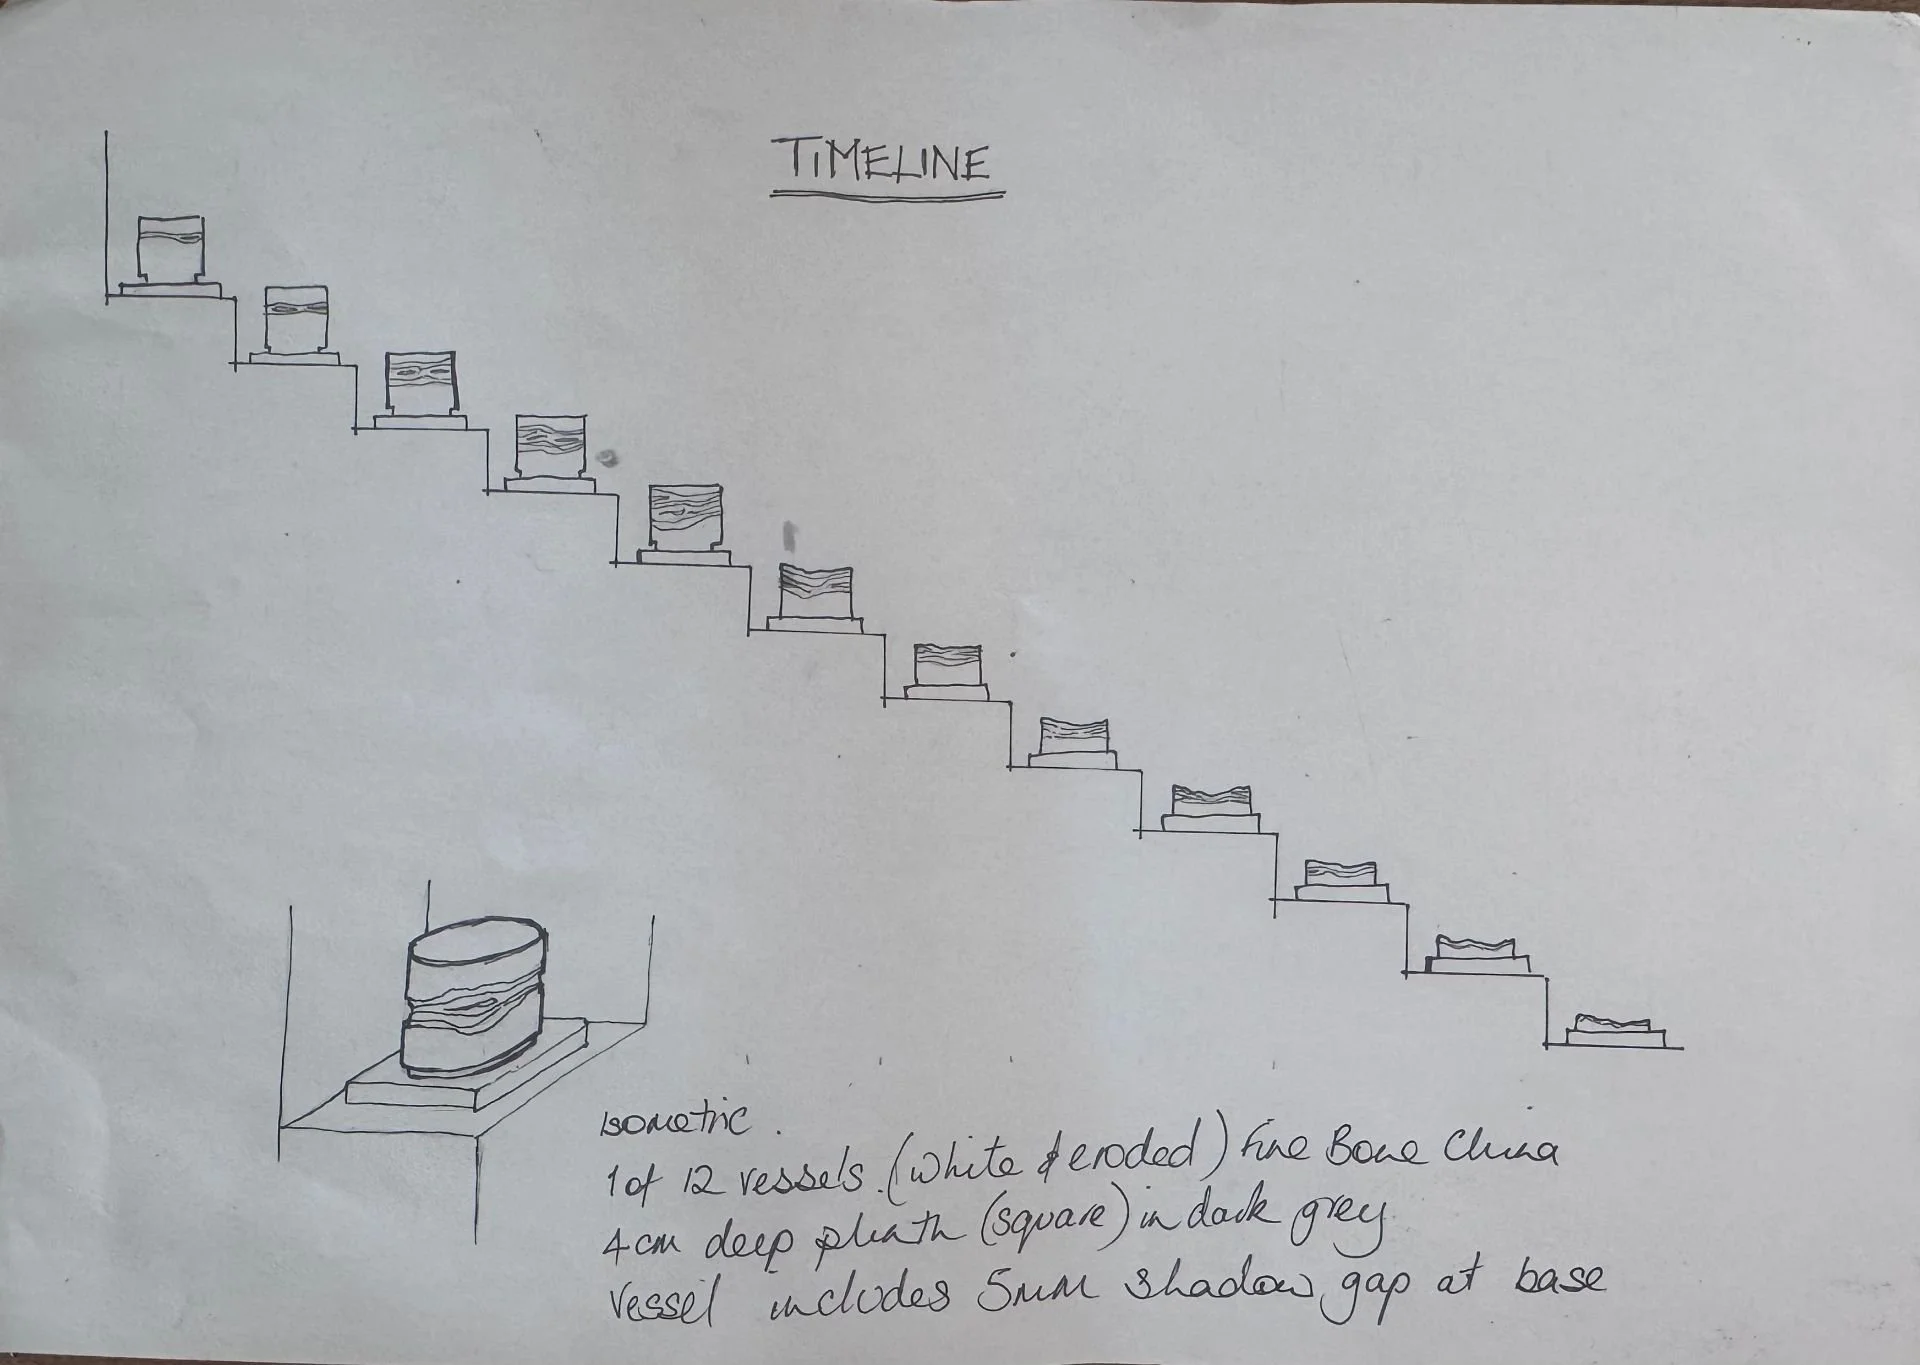 TIMELINE
Isometric.
1 of 12 vessels. (white & eroded) Fine Bone China
4cm deep plinth (square) in dark grey
Vessel includes 5mm shadow gap at base